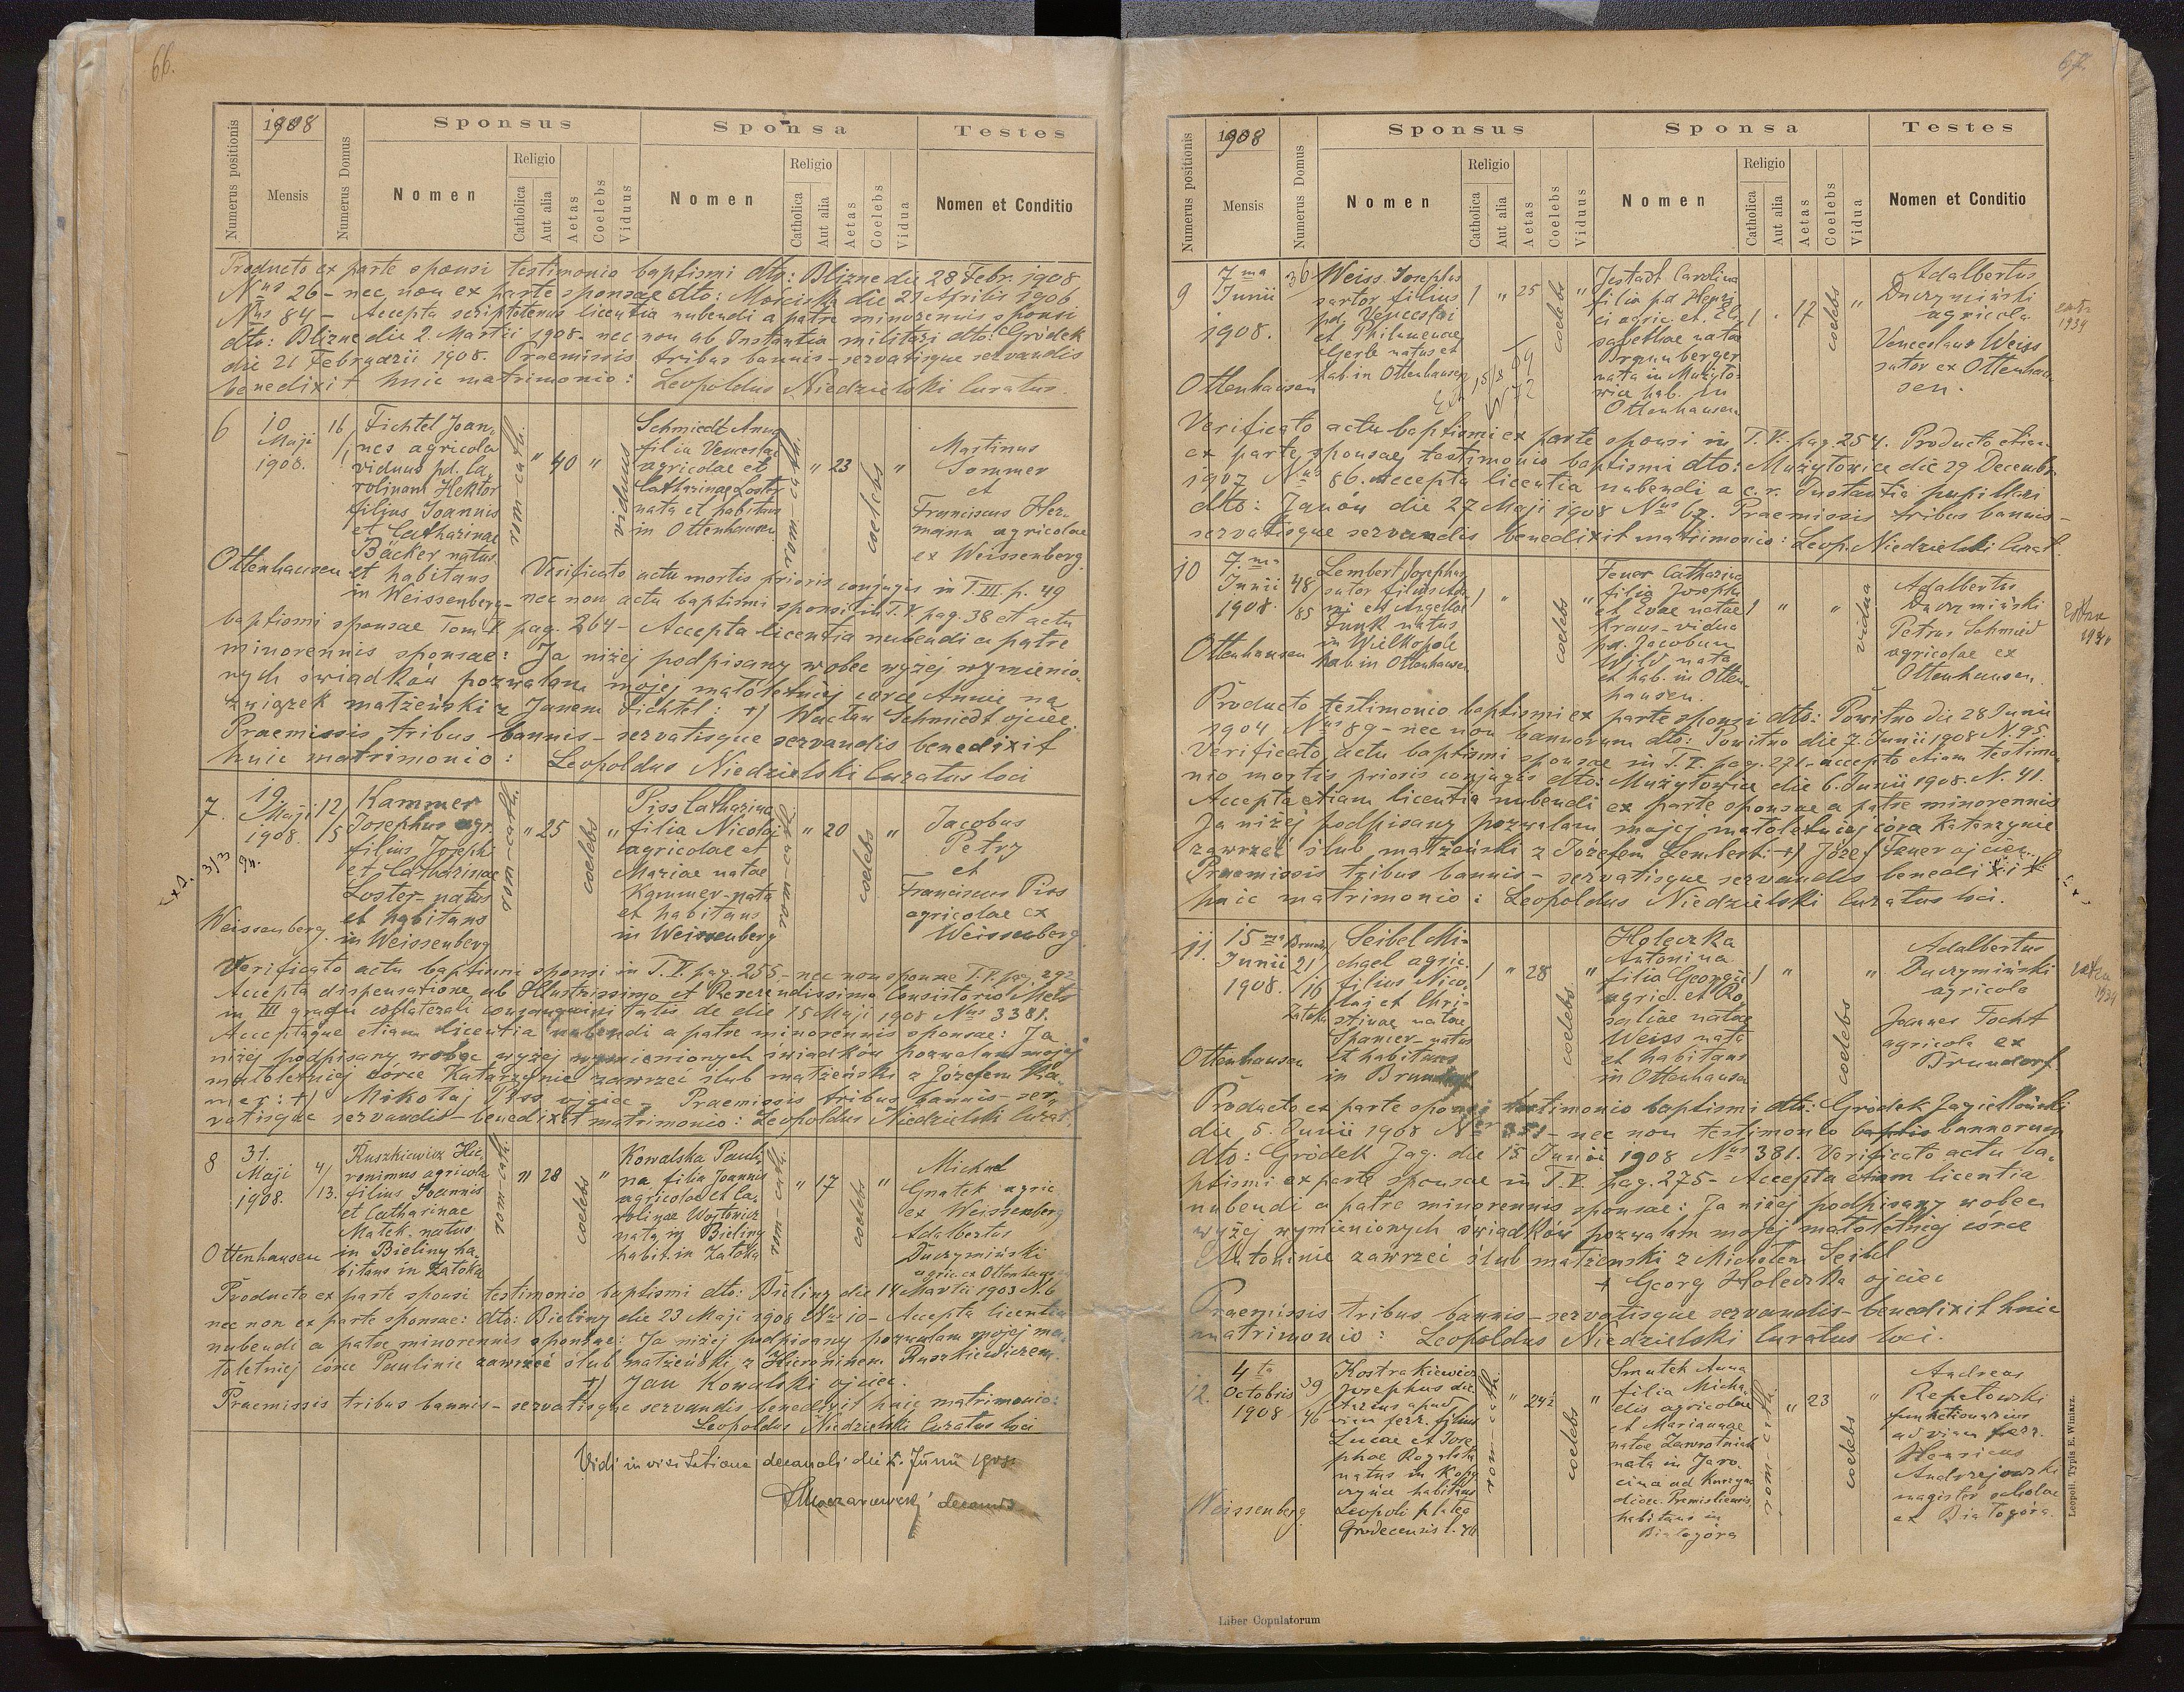 66.
Numerus positionis
1908
Mensis
Numerus Domus
Sponsus
Nomen
Religio
Catholica
Aut alia
Aetas
Coelebs
Viduus
Sponsa
Nomen
Religio
Catholica
Aut alia
Aetas
Coelebs
Vidua
Testes
Nomen et Conditio
Producto ex parte sponsi testimonio baptismi dto: Blizne die 28 Febr. 1908
Nus 26 - nec non ex parte sponsae dto: Mościska die 21 Aprilis 1906
Nus 84 - Accepta scriptotenus licentia nubendi a patre minorennis sponsi
dto: Blizne die 2. Martii 1908 - nec non ab Instantia militari dto: Gródek
die 21 Februarii 1908. Praemissis tribus bannis - servatisque servandis
benedixit huic matrimonio: Leopoldus Niedzielski Curatus.
6
10
Maji
1908.
Ottenhausen
16
Fichtel Joan-
nes agricola
viduus pd. Ca-
rolinam Hektor
filius Joannis
et Catharinae
Bäcker natus
et habitans
in Weissenberg
rom cath.
" 40 "
viduus
Schmiedt Anna
filia Venceslai
agricolae et
Catharinae Loster
nata et habitans
in Ottenhausen
rom-cath.
" 23
coelebs
"
Martinus
Sommer
et
Franciscus Her-
mann agricolae
ex Weissenberg.
Verificato actu mortis prioris conjugis in T. III. p. 49
nec non actu baptismi sponsi in T. V pag. 38 et actu
baptismi sponsae Tom V. pag. 264 - Accepta licentia nubendi a patre
minorennis sponsae: Ja niżej podpisany wobec wyżej wymienio-
nych świadków pozwalam mojej małoletniej córce Annie na
związek małżeński z Janem Fichtel: +) Wacław Schmiedt ojciec.
Praemissis tribus bannis - servatisque servandis benedixit
huic matrimonio: Leopoldus Niedzielski Curatus loci
7.
19
Maji
1908.
3/3
Weissenberg
12/
15
Kammer
Josephus agr.
filius Josephi
et Catharinae
Loster - natus
et habitans
in Weissenberg
rom-cath.
" 25
coelebs
"
Piss Catharina
filia Nicolai
agricolae et
Mariae natae
Kammer - nata
et habitans
in Weissenberg
" 20
coelebs
"
Jacobus
Petry
et
Franciscus Piss
agricolae ex
Weissenberg
Verificato actu baptismi sponsi in T. V. pag. 255 - nec non sponsae T. V. pag. 292
Accepta dispensatione ab Illustrissimo et Reverendissimo Consistorio Metr.
in III gradu collaterali consanguinitatis de die 15 Maji 1908 Nus 3381.
Acceptaque etiam licentia nubendi a patre minorennis sponsae: Ja
niżej podpisany wobec wyżej wymienionych świadków pozwalam mojej
małoletniej córce Katarzynie zawrzeć ślub małżeński z Józefem Ka-
mer: +) Mikołaj Piss ojciec - Praemissis tribus bannis - ser-
vatisque servandis - benedixit matrimonio: Leopoldus Niedzielski Curat.
8
31.
Maji
1908.
Ottenhausen
4/
13.
Ruszkiewicz Hie-
ronimus agricola
filius Joannis
et Catharinae
Małek. natus
in Bieliny ha-
bitans in Zatoka
rom-cath.
" 28
coelebs
"
Kowalska Pauli-
na filia Joannis
agricolae et Ca-
rolinae Wojtowicz
nata in Bieliny
habit. in Zatoka
rom-cath.
" 17
coelebs
"
Michael
Gnatek agric
ex Weissenberg
Adalbertus
Duczymiński
agric. ex Ottenhausen
Producto ex parte sponsi testimonio baptismi dto: Bieliny die 14 Martii 1903 N. 6
nec non ex parte sponsae: dto: Bieliny die 23 Maji 1908 Nus 10 - Accepta licentia
nubendi a patre minorennis sponsae: Ja niżej podpisany pozwalam mojej ma-
łoletniej córce Paulinie zawrzeć ślub małżeński z Hieronimem Ruszkiewiczem.
+) Jan Kowalski ojciec.
Praemissis tribus bannis - servatisque servandis benedixit huic matrimonio:
Leopoldus Niedzielski Curatus loci
Vidi in visitatione decanali die 2. Junii 1908
decanus
67.
Numerus positionis
1908
Mensis
Numerus Domus
Sponsus
Nomen
Religio
Catholica
Aut alia
Aetas
Coelebs
Viduus
Sponsa
Nomen
Religio
Catholica
Aut alia
Aetas
Coelebs
Vidua
Testes
Nomen et Conditio
9
7 ma
Junii
1908.
Ottenhausen
36
Weiss Josephus
sartor filius
pd. Venceslai
et Philumenae
Gerle natus et
hab. in Ottenhausen
1 " 25
coelebs
"
Jestadt Carolina
filia pd Henri-
ci agric. et Eli-
sabethae natae
nata in Mużyło-
wice hab. in
Ottenhausen
1 " 17
coelebs
"
Adalbertus
Duczymiński
agricola
Venceslaus Weiss
sutor ex Ottenhau-
sen.
1934
Verificato actu baptismi ex parte sponsi in T. V. pag. 254. Producto etiam
ex parte sponsae testimonio baptismi dto: Mużyłowice die 29 Decembr.
1907 Nus 86. Accepta licentia nubendi a c. r. Instantia pupillari
dto: Janów die 27 Maji 1908 Nus 67. Praemissis tribus bannis -
servatisque servandis benedixit matrimonio: Leop. Niedzielski Curat.
10
7. ma
Junii
1908.
Ottenhausen
48
85
Lembert Josephus
sutor filius Ada-
mi et Angelae
Funk natus
in Wielkopole
hab. in Ottenhausen
1 "
coelebs
"
Feuer Catharina
filia Josephi
et Evae natae
Kraus - vidua
pd. Jacobum
Wild nata
et hab. in Otten-
hausen.
1 " "
vidua
Adalbertus
Duczymiński
Petrus Schmied
agricolae ex
Ottenhausen.
Producto testimonio baptismi ex parte sponsi dto: Powitno die 28 Junii
1904 Nus 89 - nec non bannorum dto: Powitno die 7. Junii 1908 N. 95.
Verificato actu baptismi sponsae in T. V. pag. 271. accepto etiam testimo-
nio mortis prioris conjugis dto: Mużyłowice die 6. Junii 1908. N. 41.
Accepta etiam licentia nubendi ex parte sponsae a patre minorennis
Ja niżej podpisany pozwalam mojej małoletniej córce Katarzynie
zawrzeć ślub małżeński z Józefem Lembert - +) Józef Feuer ojciec.
Praemissis tribus bannis - servatisque servandis benedixit
huic matrimonio: Leopoldus Niedzielski Curatus loci.
11.
15 ma
Junii
1908.
Ottenhausen
21/
16
Zatoka
Seibel Mi-
chael agric.
filius Nico-
lai et Chri-
stinae natae
Spanier - natus
et habitans
in Brundorf
1 " 28
coelebs
"
Holeczka
Antonina
filia Georgii
agric. et Ro-
saliae natae
Weiss nata
et habitans
in Ottenhausen
1 "
coelebs
"
Adalbertus
Duczymiński
agricola
Joannes Tocht
agricola ex
Brundorf.
1934
Producto ex parte sponsi testimonio baptismi dto: Gródek Jagielloński
die 5. Junii 1908 Nus 351 - nec non testimonio baptis bannorum
dto: Gródek Jag. die 15 Junii 1908 Nus 381. Verificato actu ba-
ptismi ex parte sponsae in T. V. pag. 275 - Accepta etiam licentia
nubendi a patre minorennis sponsae: Ja niżej podpisany wobec
wyżej wymienionych świadków pozwalam mojej małoletniej córce
Antoninie zawrzeć ślub małżeński z Michałem Seibel
+ Georg Holeczka ojciec
Praemissis tribus bannis - servatisque servandis - benedixit huic
matrimonio: Leopoldus Niedzielski Curatus loci.
12.
4 ta
Octobris
1908
Weissenberg
39/
46
Kostrakiewicz
Josephus die-
tarius apud
viam ferr. filius
Lucae et Jose-
phae Rogalska
natus in Kopy-
czyńce habitans
Leopoli platea
Grodecensis l. 48
rom-cath.
" 24½
coelebs
"
Smutek Anna
filia Micha-
elis agricolae
et Mariannae
natae Zawrotniak
nata in Jaro-
cina ad Kurzyna
dioec. Premisliensis
habitans in
Białogóra
rom-cath.
" 23
coelebs
"
Andreas
Repetowski
functionarius
ad viam ferr.
Henricus
Andrzejowski
magister scholae
ex Białogóra.
Leopoli. Typis E. Winiarz.
Liber Copulatorum